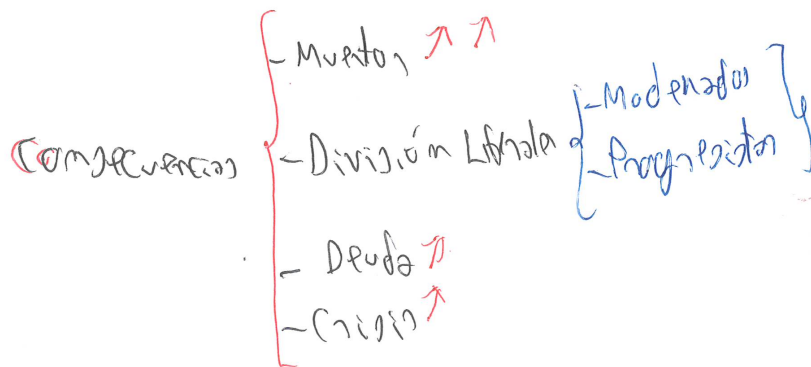 Consecuencias
- Muertos ↗ ↗
- División Liberales
- Moderados
- Progresistas
- Deuda ↗
- Crisis ↗